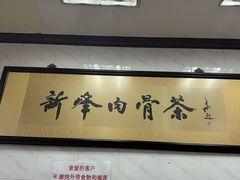 新峰肉骨茶
亲爱的客户
※谢绝外带食物和榴莲